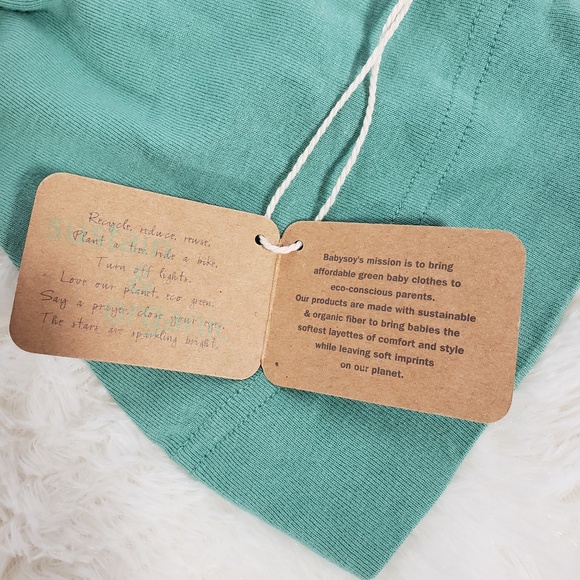 Recycle, reduce, reuse,
Plant a tree, ride a bike,
Turn off lights.
Love our planet, eco green,
Say a prayer, close your eyes,
The stars are sparkling bright.
Babysoy's mission is to bring
affordable green baby clothes to
eco-conscious parents.
Our products are made with sustainable
& organic fiber to bring babies the
softest layettes of comfort and style
while leaving soft imprints
on our planet.